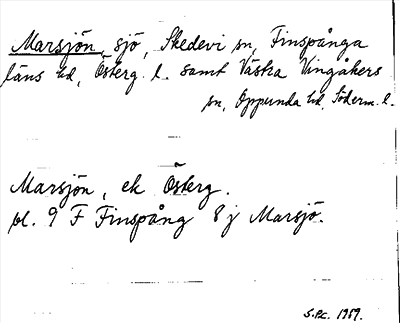 Marsjön, sjö, Skedevi sn, Finspånga
läns hd, Österg. l. samt Västra Vingåkers
sn, Oppunda hd, Söderm. l.
Marsjön, ek Österg.
bl. 9 F Finspång 8 j Marsjö.
1959.